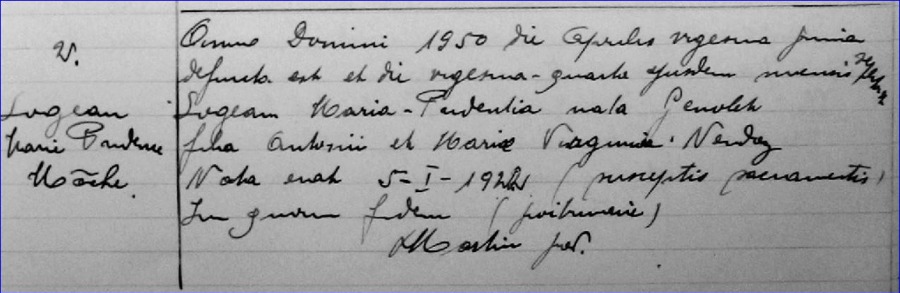 V.
Logean
Marie Prudence
Mâche.
Anno Domini 1950 die Aprilis vigesima prima
defuncta est et die vigesima-quarta ejusdem mensis sepulta
Logean Maria-Prudentia nata Genolet
filia Antonii et Mariæ Virginiæ Nendaz
Nata erat 5-I-1922 (susceptis sacramentis)
In quorum fidem (poitrinaire)
Martin